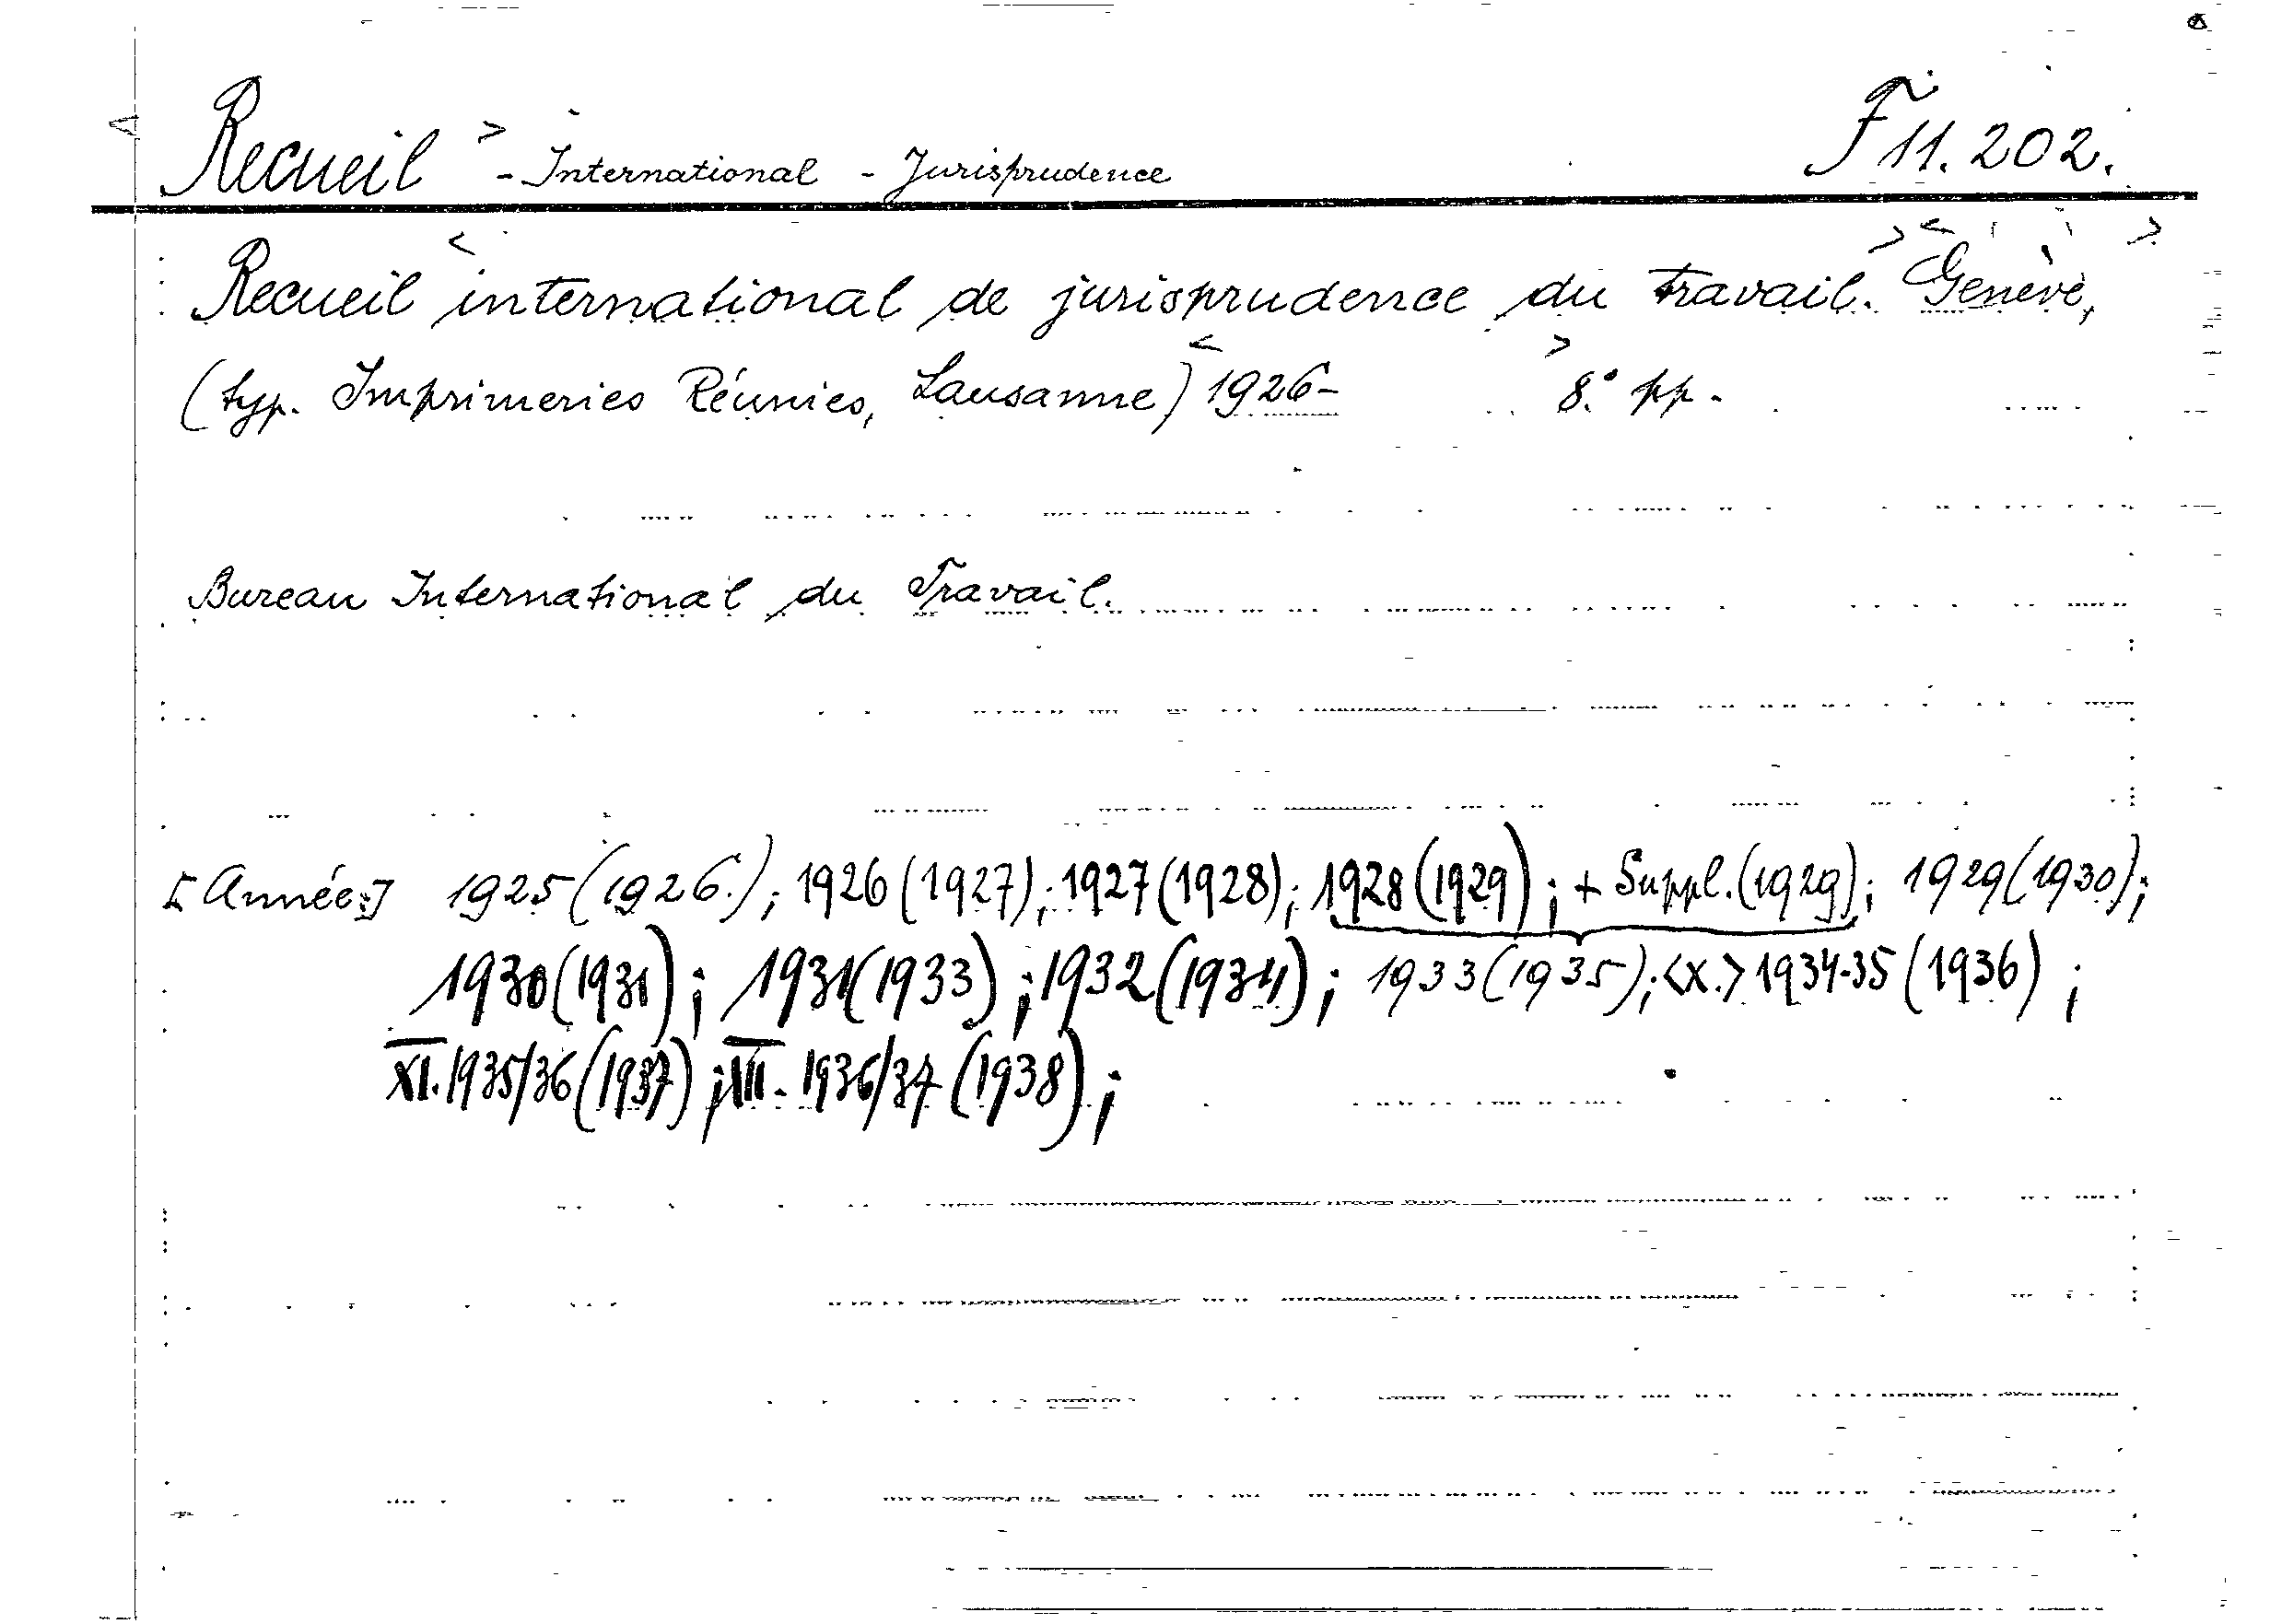 Recueil > - International - Jurisprudence F 11.202.
Recueil < international de jurisprudence du travail. > < Genève, >
(typ. Imprimeries Réunies, Lausanne) < 1926- > 8.° pp.
Bureau International du Travail.
[Année:] 1925 (1926.); 1926 (1927); 1927 (1928); 1928 (1929); + Suppl. (1929); 1929 (1930);
1930 (1931); 1931 (1933); 1932 (1934); 1933 (1935); <X.> 1934-35 (1936);
XI. 1935/36 (1937); XII. 1936/37 (1938);